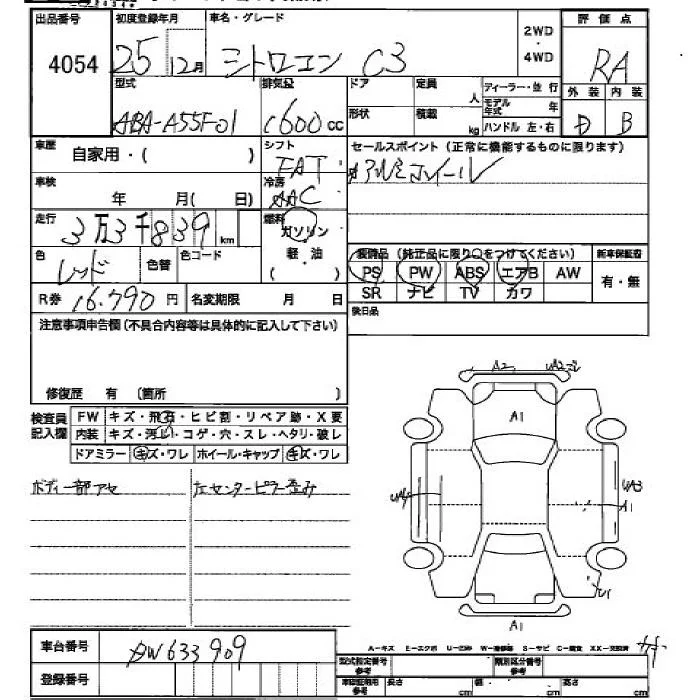 出品番号 初度登録年月 車名・グレード 2WD・4WD 評価点
4054 25 12月 シトロエン C3 RA
型式 排気量 ドア 定員 人 ディーラー・並行 外装 内装
ABA-A55F01 1600 cc 形状 積載 kg モデル年式 年 ハンドル 左・右 D B
車歴 自家用・( ) シフト FAT セールスポイント (正常に機能するものに限ります)
車検 年 月( 日) 冷房 AAC アルミホイール
走行 3万3千839 km 燃料 ガソリン・軽・油 ( )
色 レッド 色替 色コード 装備品 (純正品に限り○をつけてください) 新車保証書
PS PW ABS エアB AW 有・無
R券 16,790 円 名変期限 月 日 SR ナビ TV カワ
注意事項申告欄(不具合内容等は具体的に記入して下さい) 後日品
修復歴 有 〔箇所 〕
検査員記入欄 FW キズ・飛石・ヒビ割・リペア跡・X要
内装 キズ・汚れ・コゲ・穴・スレ・ヘタリ・破レ
ドアミラー キズ・ワレ ホイール・キャップ キズ・ワレ
ボディー部アセ 左センターピラー歪み
A2 UA2
A1
UA4 UA3
A1
U1
A1
車台番号 DW633909
A-キズ E-エクボ U-凹み W-補修跡 S-サビ C-腐食 XX-交換済
登録番号 型式指定番号 参考 類別区分番号 参考
車検証用用参考 長さ cm 幅 cm 高さ cm